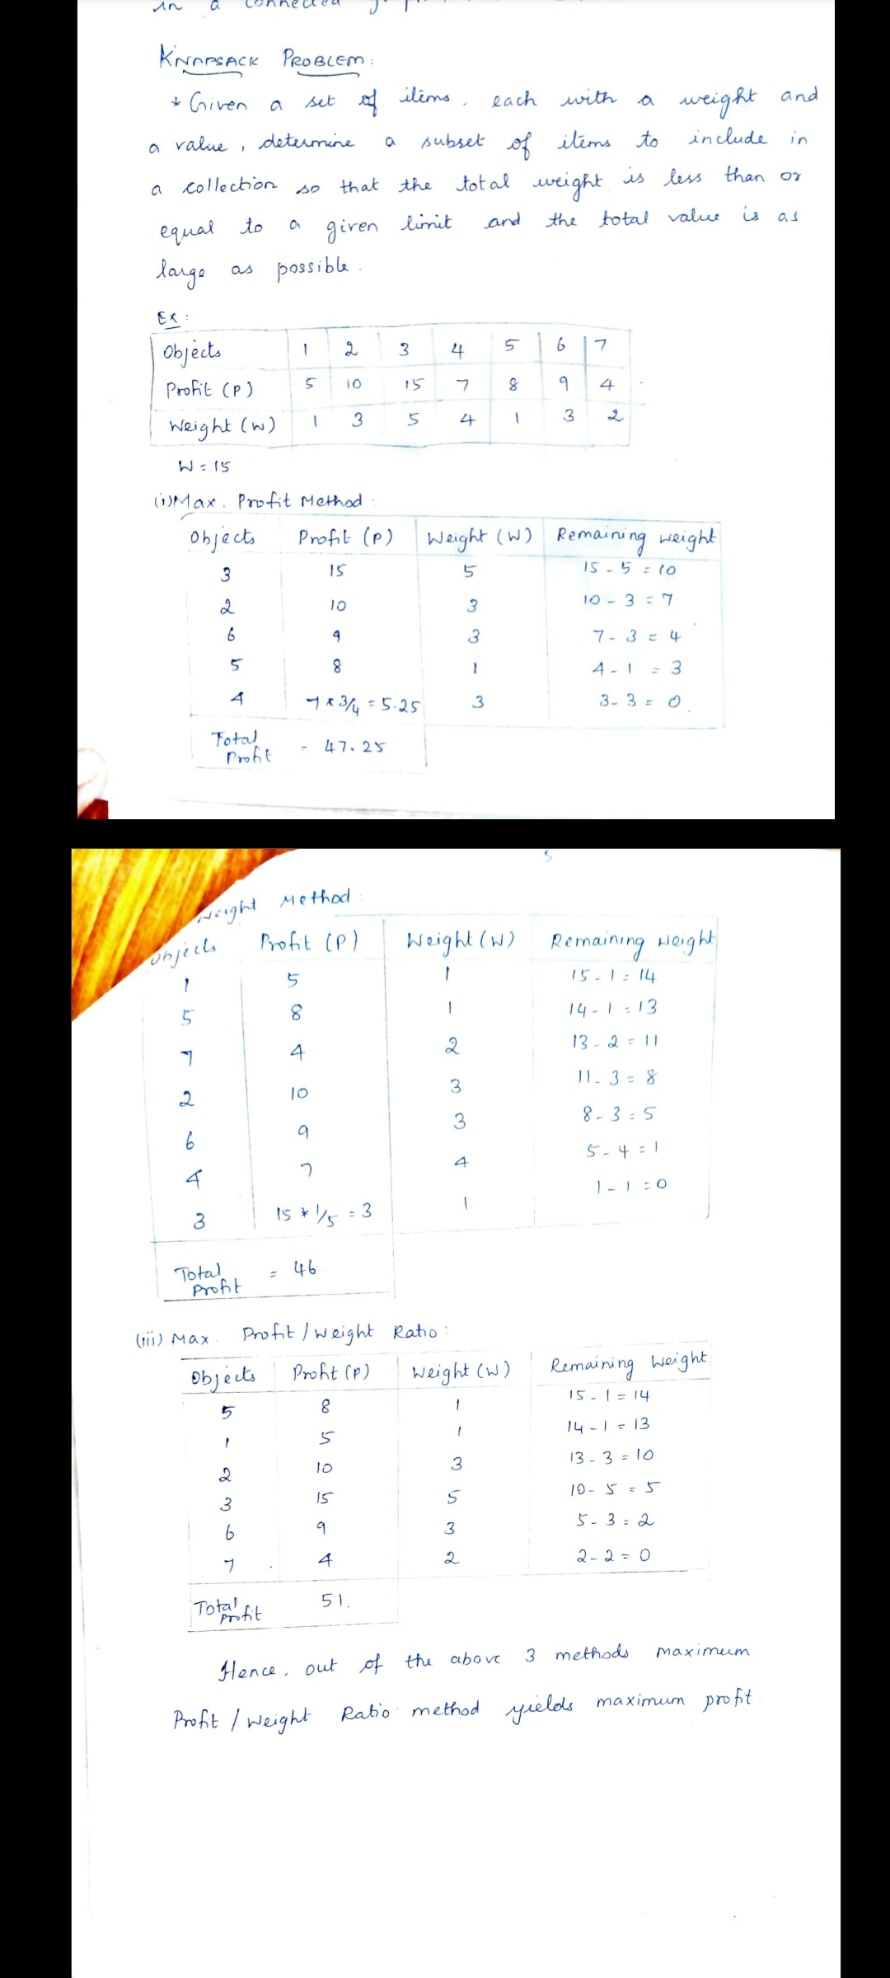 in a connected
KNAPSACK PROBLEM:
* Given a set of items, each with a weight and
a value, determine a subset of items to include in
a collection so that the total weight is less than or
equal to a given limit and the total value is as
large as possible.
Ex:
Objects 1 2 3 4 5 6 7
Profit (P) 5 10 15 7 8 9 4
Weight (W) 1 3 5 4 1 3 2
W = 15
(i) Max. Profit Method:
Objects Profit (P) Weight (W) Remaining weight
3 15 5 15 - 5 = 10
2 10 3 10 - 3 = 7
6 9 3 7 - 3 = 4
5 8 1 4 - 1 = 3
4 7 * 3/4 = 5.25 3 3 - 3 = 0.
Total Profit - 47.25
5
Weight Method:
Objects Profit (P) Weight (W) Remaining Weight
1 5 1 15 - 1 = 14
5 8 1 14 - 1 = 13
7 4 2 13 - 2 = 11
2 10 3 11 - 3 = 8
6 9 3 8 - 3 = 5
4 7 4 5 - 4 = 1
3 15 * 1/5 = 3 1 1 - 1 = 0
Total Profit = 46
(iii) Max. Profit / Weight Ratio:
Objects Profit (P) Weight (W) Remaining Weight
5 8 1 15 - 1 = 14
1 5 1 14 - 1 = 13
2 10 3 13 - 3 = 10
3 15 5 10 - 5 = 5
6 9 3 5 - 3 = 2
7 4 2 2 - 2 = 0
Total Profit 51.
Hence, out of the above 3 methods maximum
Profit / Weight Ratio method yields maximum profit